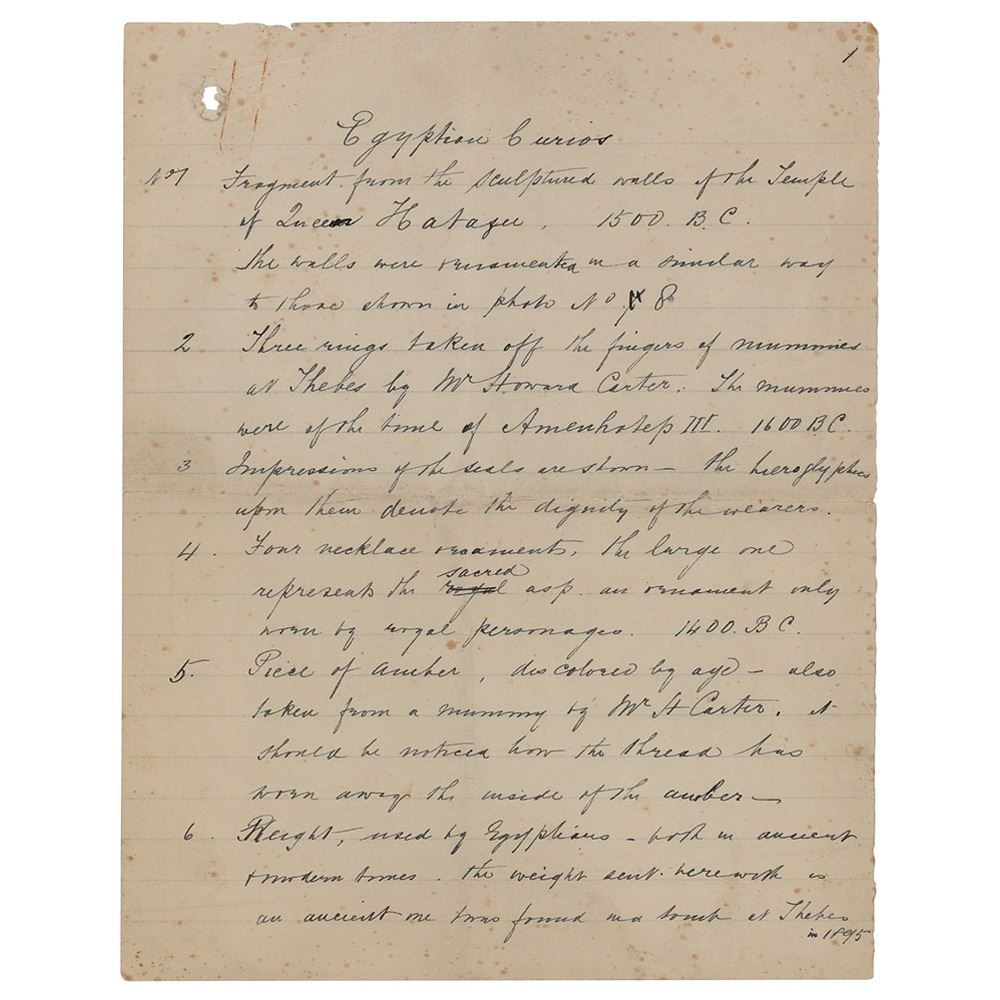 1
Egyptian Curios
No 1 Fragment from the sculptured walls of the Temple
of Queen Hatasu, 1500. B.C.
The walls were ornamented in a similar way
to those shown in photo No 8
2 Three rings taken off the fingers of mummies
at Thebes by Mr Howard Carter. The mummies
were of the time of Amenhotep III. 1600 B.C.
3 Impressions of the seals are shown – the hieroglyphics
upon them denote the dignity of the wearers.
4. Four necklace ornaments, the large one
sacred
represents the royal asp. an ornament only
worn by royal personages. 1400. B C.
5. Piece of amber, discolored by age – also
taken from a mummy by Mr H Carter. it
should be noticed how the thread has
worn away the inside of the amber –
6. Weight, used by Egyptians – both in ancient
& modern times. The weight sent herewith is
an ancient one & was found in a tomb at Thebes
in 1895